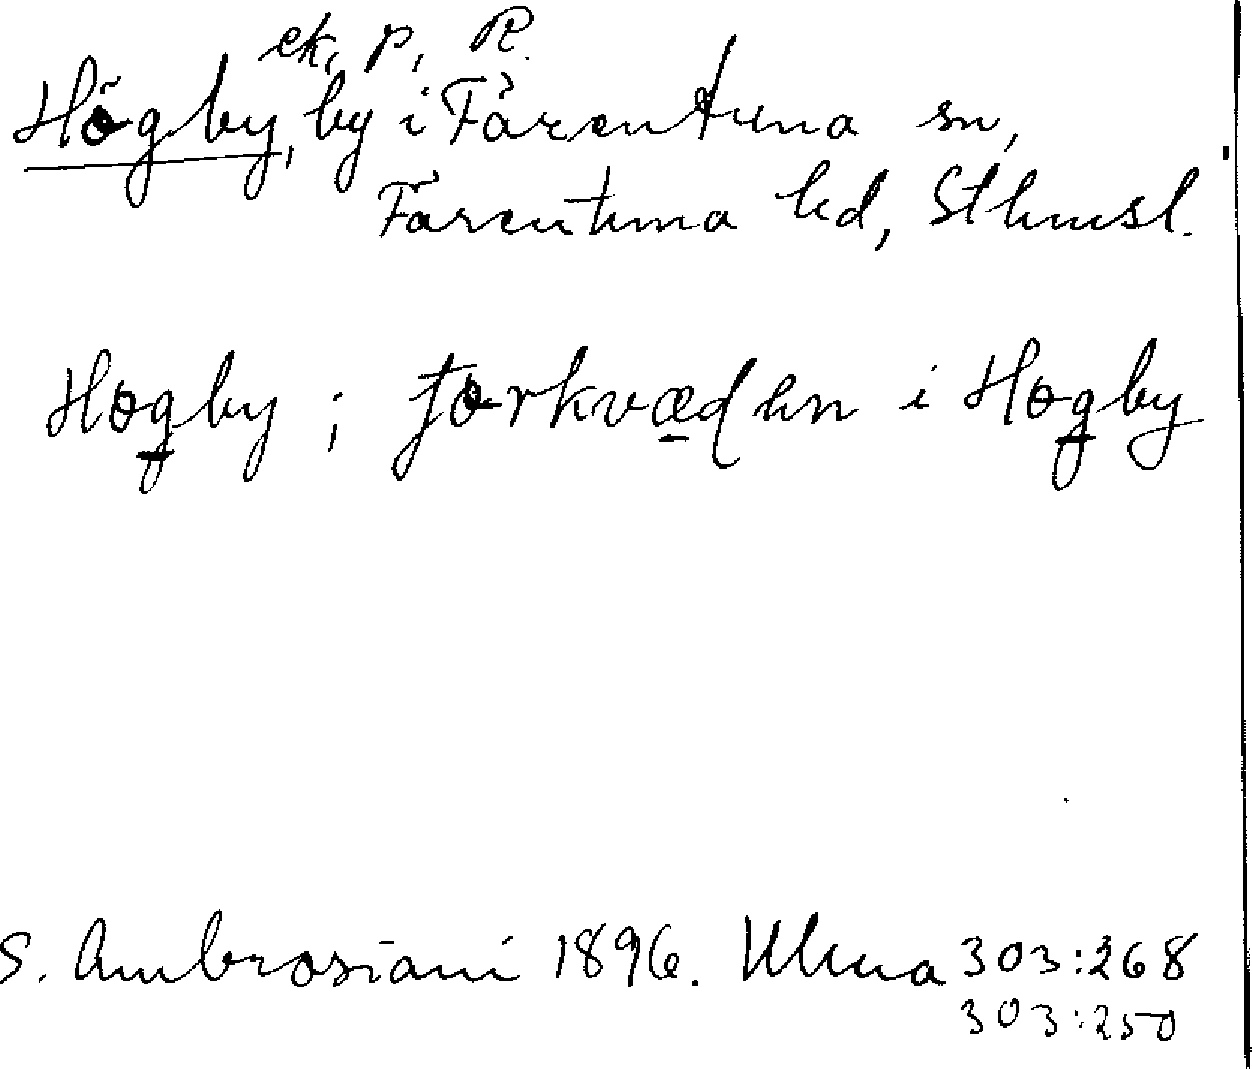 ek, p, R.
Högby, by i Färentuna sn,
Färentuna hd, Sthmsl.
Høgby ; førkvædhn i Høgby
S. Ambrosiani 1896. Ulma 303:268
303:250